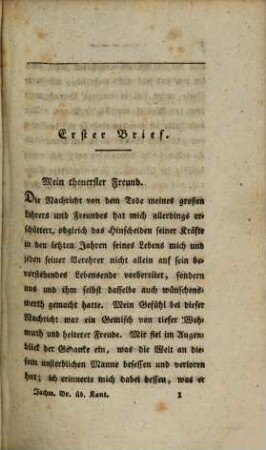 Erster Brief.
Mein theuerster Freund.
Die Nachricht von dem Tode meines großen
Lehrers und Freundes hat mich allerdings er-
schüttert, obgleich das Hinscheiden seiner Kräfte
in den letzten Jahren seines Lebens mich und
jeden seiner Verehrer nicht allein auf sein be-
vorstehendes Lebensende vorbereitet, sondern
uns und ihm selbst dasselbe auch wünschens-
werth gemacht hatte. Mein Gefühl bei dieser
Nachricht war ein Gemisch von tiefer Weh-
muth und heiterer Freude. Mir fiel im Augen-
blick der Gedanke ein, was die Welt an die-
sem unsterblichen Manne besessen und verloren
hat; ich erinnerte mich dabei dessen, was er
Jachm. Br. üb. Kant. 1